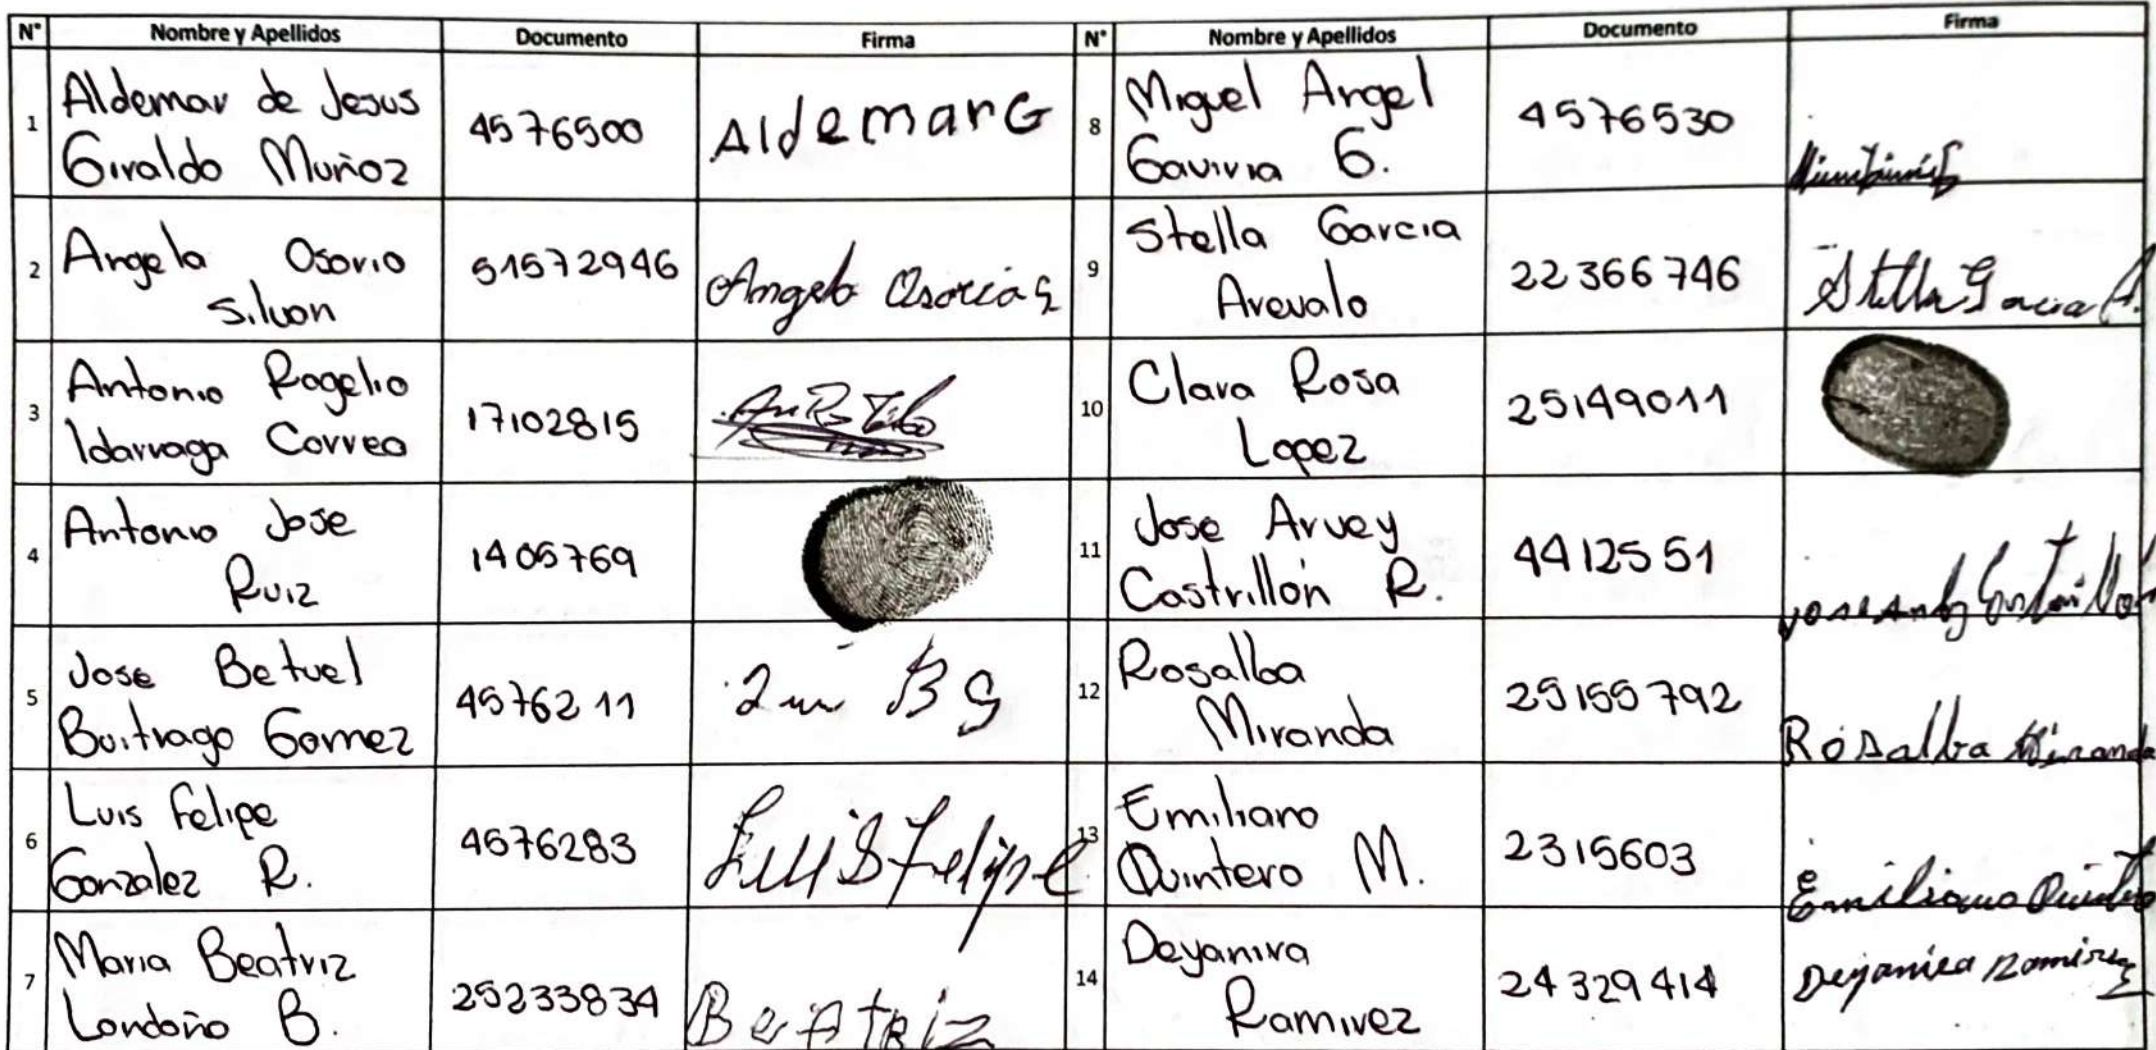 N° Nombre y Apellidos Documento Firma N° Nombre y Apellidos Documento Firma
1
Aldemar de Jesus
Giraldo Muñoz
4576500
AldemarG
2
Angela Osorio
Silvan
51572946
Angela Osorio S
3
Antonio Rogelio
Idarraga Correa
17102815
4
Antonio Jose
Ruiz
1405769
5
Jose Betuel
Buitrago Gomez
4576211
B G
6
Luis Felipe
Gonzalez R.
4576283
Luis Felipe
7
Maria Beatriz
Londoño B.
25233834
Beatriz
8
Miguel Angel
Gaviria G.
4576530
9
Stella Garcia
Arevalo
22366746
Stella Garcia A.
10
Clara Rosa
Lopez
25149011
11
Jose Arvey
Castrillón R.
4412551
Jose Arvey Castrillon
12
Rosalba
Miranda
25155792
Rosalba Miranda
13
Emiliano
Quintero M.
2315603
Emiliano Quintero
14
Deyanira
Ramirez
24329414
Deyanira Ramirez